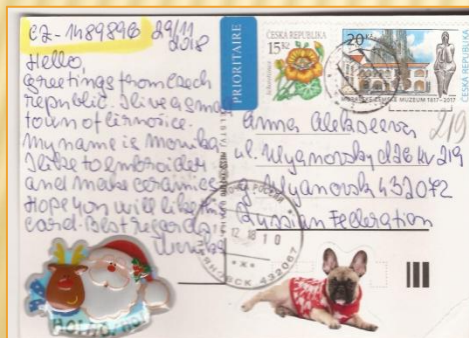 CZ-1489896 29/11
2018
Hello,
greetings from Czech
republic. I live a small
town of Černošice.
My name is Monika
I like to embroider
and make ceramics
Hope you will like the
card. Best regards,
Monika
HO! HO! HO!
PRIORITAIRE
ČESKÁ REPUBLIKA
15 Kč
20 Kč
MUZEUM 1817-2017
ČESKÁ REPUBLIKA
219
Anna Alekseeva
ul. Ulyanovsky d26 kv 219
Ulyanovsk 432072
Russian Federation
12.18 10
432067